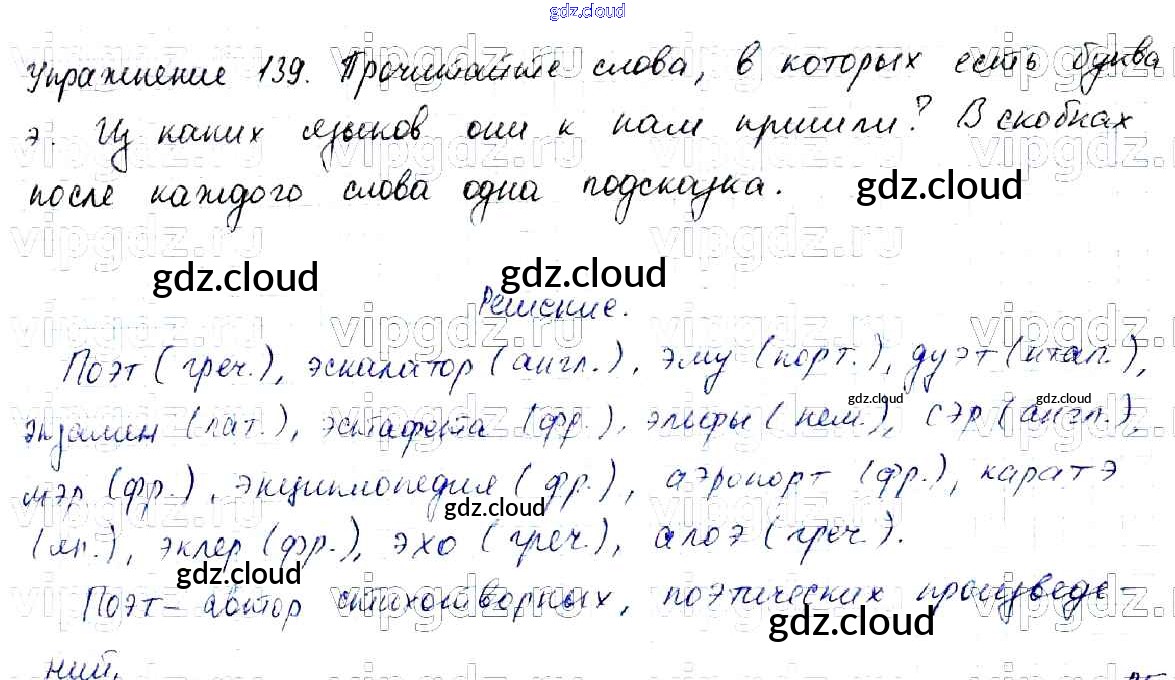 gdz.cloud
Упражнение 139. Прочитайте слова, в которых есть буква
э. Из каких языков они к нам пришли? В скобках
после каждого слова одна подсказка. gdz.cloud
vipgdz.ru vipgdz.ru vipgdz.ru vipgdz.ru
gdz.cloud gdz.cloud
Решение.
Поэт (греч.), эскалатор (англ.), эму (порт.), дуэт (итал.),
gdz.cloud gdz.cloud
экзамен (лат.), эстафета (фр.), эльфы (нем.), сэр (англ.),
мэр (фр.), энциклопедия (фр.), аэропорт (фр.), каратэ
gdz.cloud
(яп.), эклер (фр.), эхо (греч.), алоэ (греч.).
gdz.cloud
Поэт – автор стихотворных, поэтических произведе-
gdz.cloud
ний.